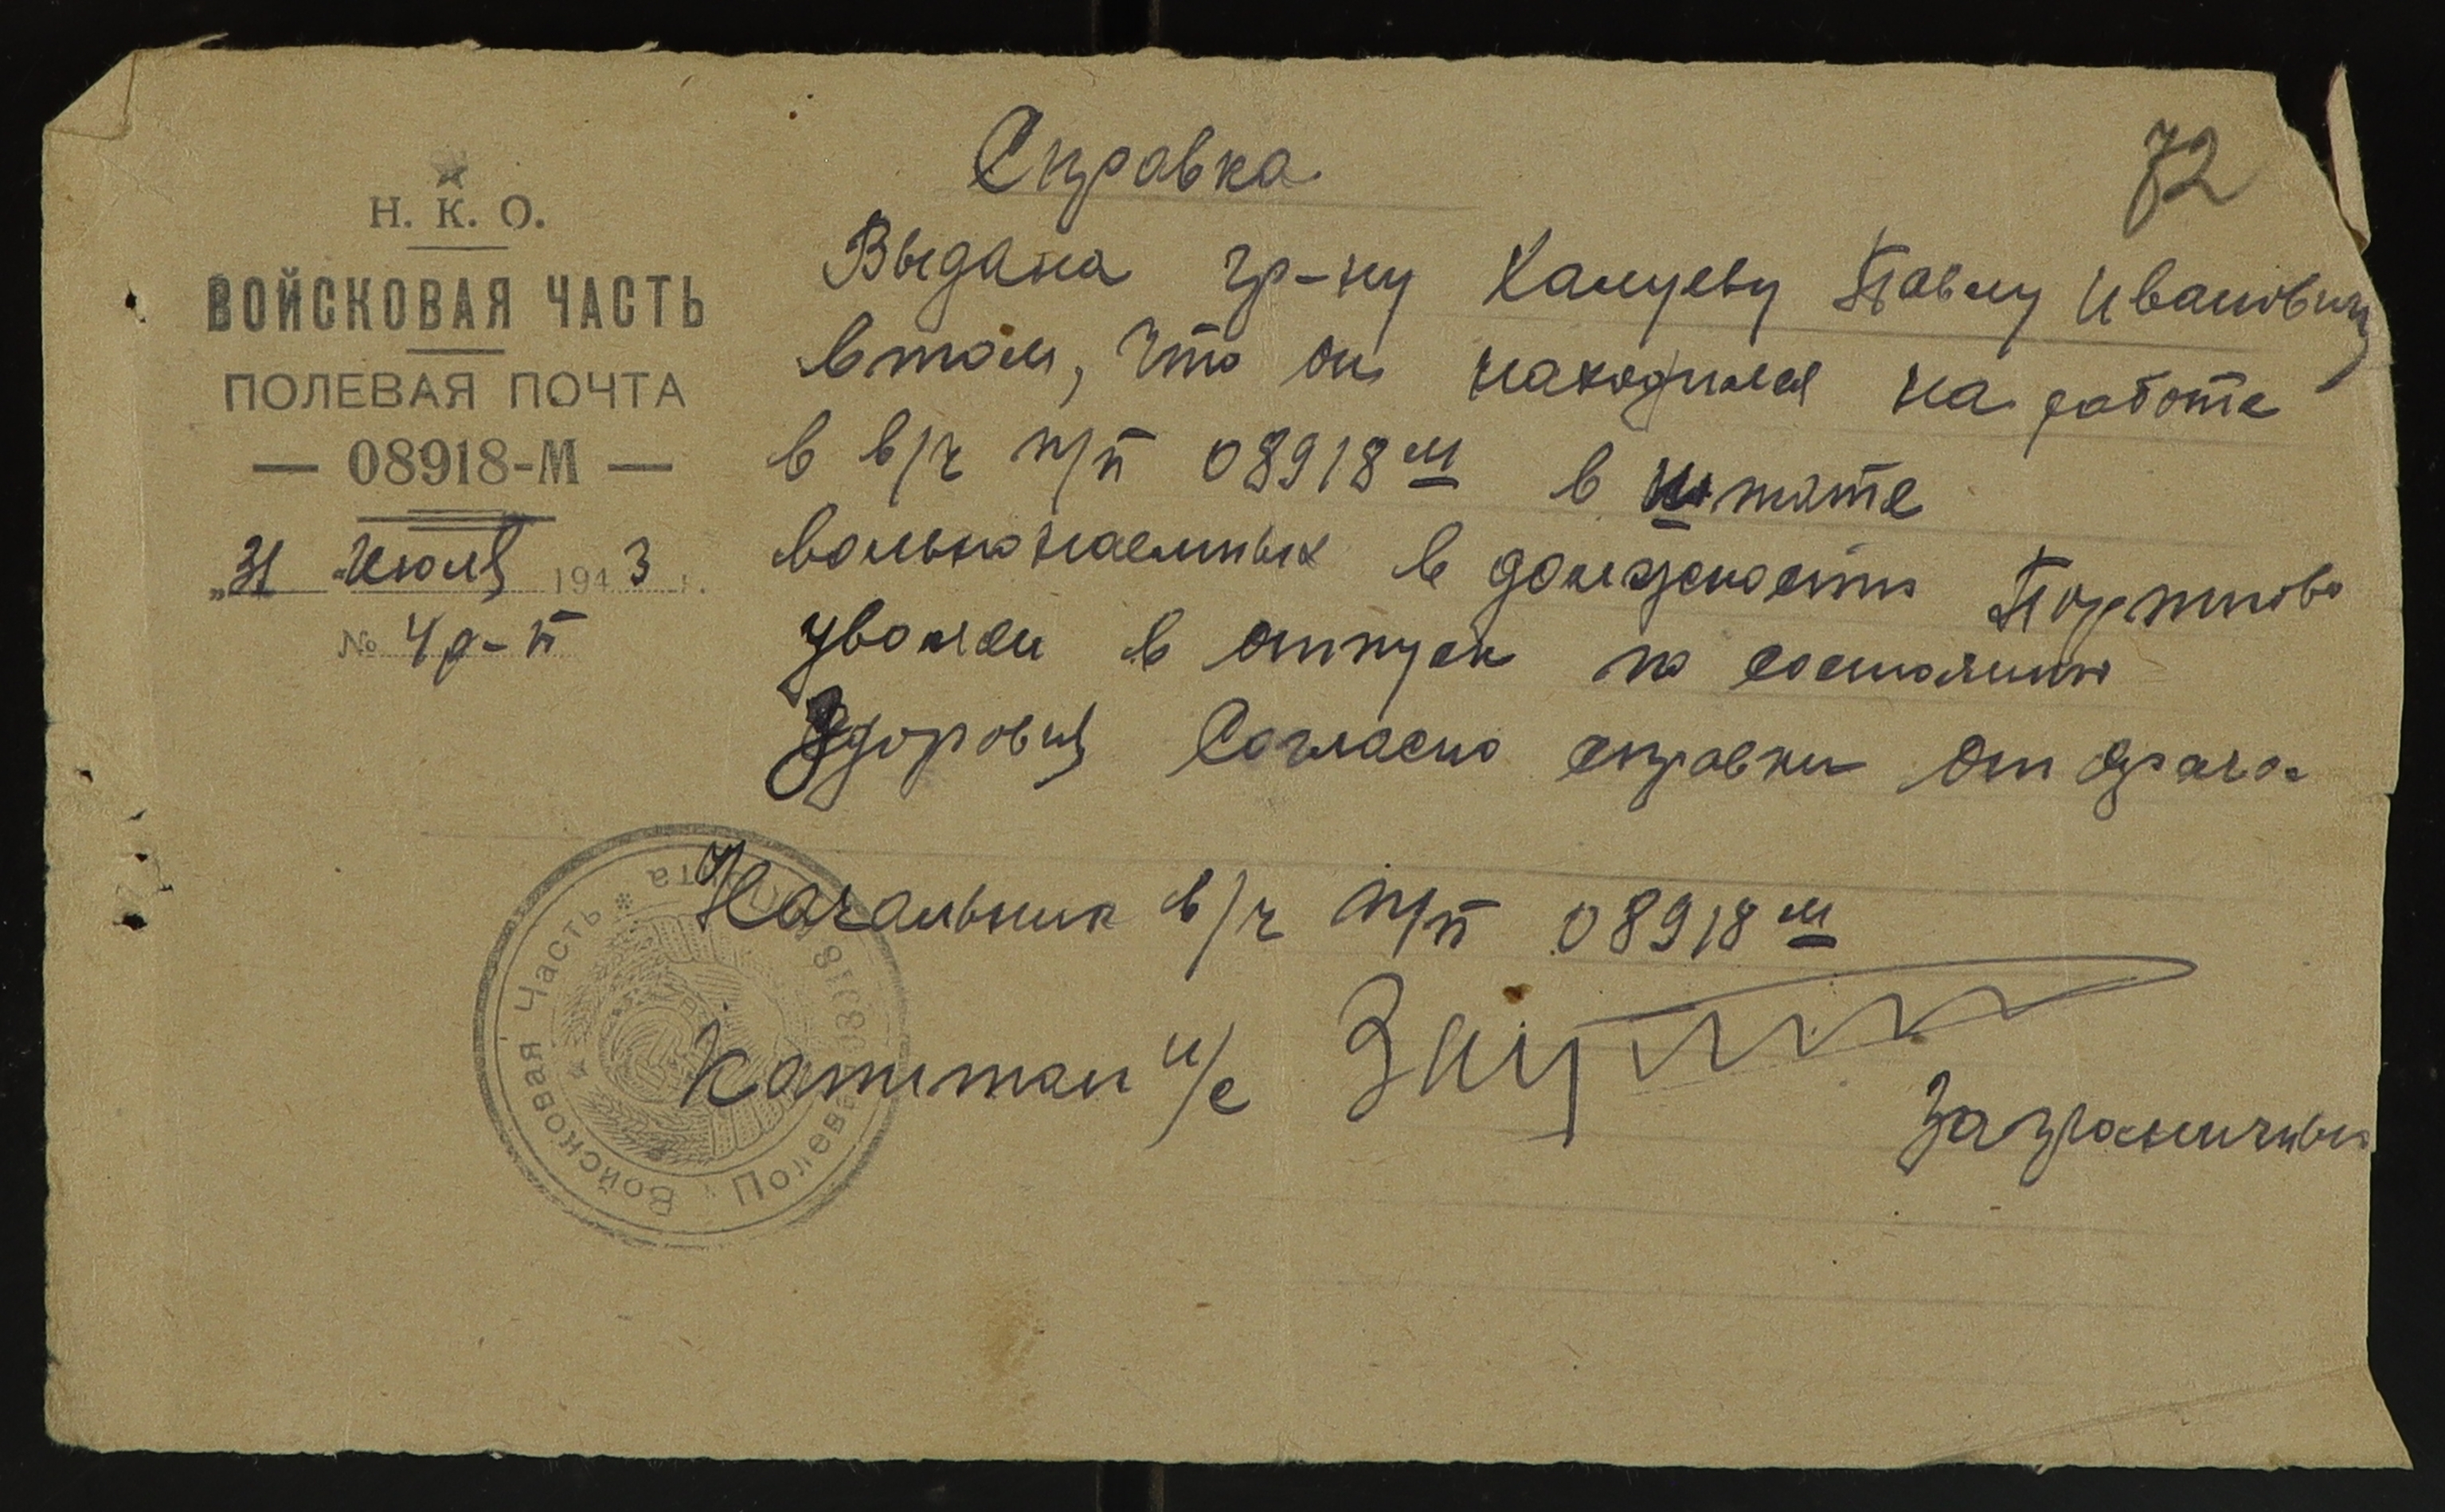 Н. К. О.
ВОЙСКОВАЯ ЧАСТЬ
ПОЛЕВАЯ ПОЧТА
— 08918-М —
„31 Июля 1943 г.
№ 4р-п
72
Справка
Выдана гр-ну Калуеву Павлу Ивановичу
в том, что он находился на работе
в в/ч п/п 08918 м в штате
вольнонаемных в должности Портново
уволен в отпуск по состоянию
Здоровия Согласно справки от врача.
Начальник в/ч п/п 08918 м
Капитан и/с
Заграничный
Войсковая Часть * Полевая Почта 08918